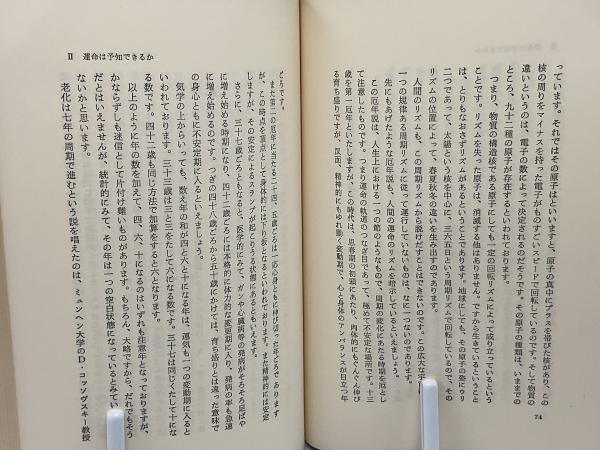 っています。それではその原子はといいますと、原子の真中にプラスを帯びた核があり、この
核の周りをマイナスを持った電子がものすごいスピードで回転しているのです。そして物質の
違いというのは、電子の数によって決定されるのだそうです。その原子の種類は、いままでの
ところ、九十二種の原子が存在するといわれております。
つまり、物質の構造核である原子にしても一定の回転リズムによって成り立っているという
ことです。リズムを失った原子は、消滅する他はありません。ですから生きているということ
は、とりもなおさずリズムがあるということであります。地球にしても、その原子の発にゃり
二つであって、太陽という核を中心に、三六五日という周期リズムで回転しているので、その
リズムの位置によって、春夏秋冬の違いを生み出すのであります。
人間のリズムも、この周期リズムから脱けだすことはできないのです。この広大な宇
一つの規律ある周期リズムに従って運行していないものは、なに一つないのであります。
先にもあげたような厄年説も、人間の運命のリズムを暗示しているといえましょう。
この厄年説は、人生上における一つの節のようなもので、周期の変化にあたる時期を抜とし
て注意したものです。つまり運命の軌跡のつなぎ目であって、極めて不安定な場所です。十三
歳を第一厄年といたしますが、この時代は、思春期の初頭にあたり、肉体的にもぐんぐん伸び
る育ち盛りですが、反面、精神的にもゆれ動く変動期で、心と身体のアンバランスが目立つ年
74
Ⅱ 運命は予知できるか
どろです。
また第二の厄年に当たる二十四、五歳ごろは一応心身ともに伸び切った年ごろであります
が、この時点を頂点として身体的には下り坂となるといわれております。また精神的には安定
しますが、その安定によるスランプが起こりうる状態にあるといえます。
さらに、三十三歳ごろともなると、医学的にみて、ガンや心臓病等の発病がそろそろ足ばや
に増え始める時期になり、四十二歳ごろには本格的に体力的な変更期に入り、発病の率も急速
に増え始めてくるのです。つぎの四十八歳ごろから五十歳にかけては、育ち盛りとは違った意味で
の身心ともに不安定期に入るといえましょう。
気学の上からいっても、数え年の和が四と六と十になる年は、運気も一つの変動期に入ると
いわれております。三十三歳は三と三をたして六となる数です。三十七は同じくたして十にな
る数です。四十二歳も同じ方法で加算をすると六となります。
以上のように年の数を加えて、四、六、十になるのはいずれも注意年となっておりますが、
かならずしも迷信として片付け難いものがあります。もちろん、大略ですから、だれでもそう
だとはいえませんが、統計的にみて、その年は一つの空白状態になっているとみてい
ないかと思います。
老化は七年の周期で進むという説を唱えたのは、ミュンヘン大学のD・コッソヴスキー教授